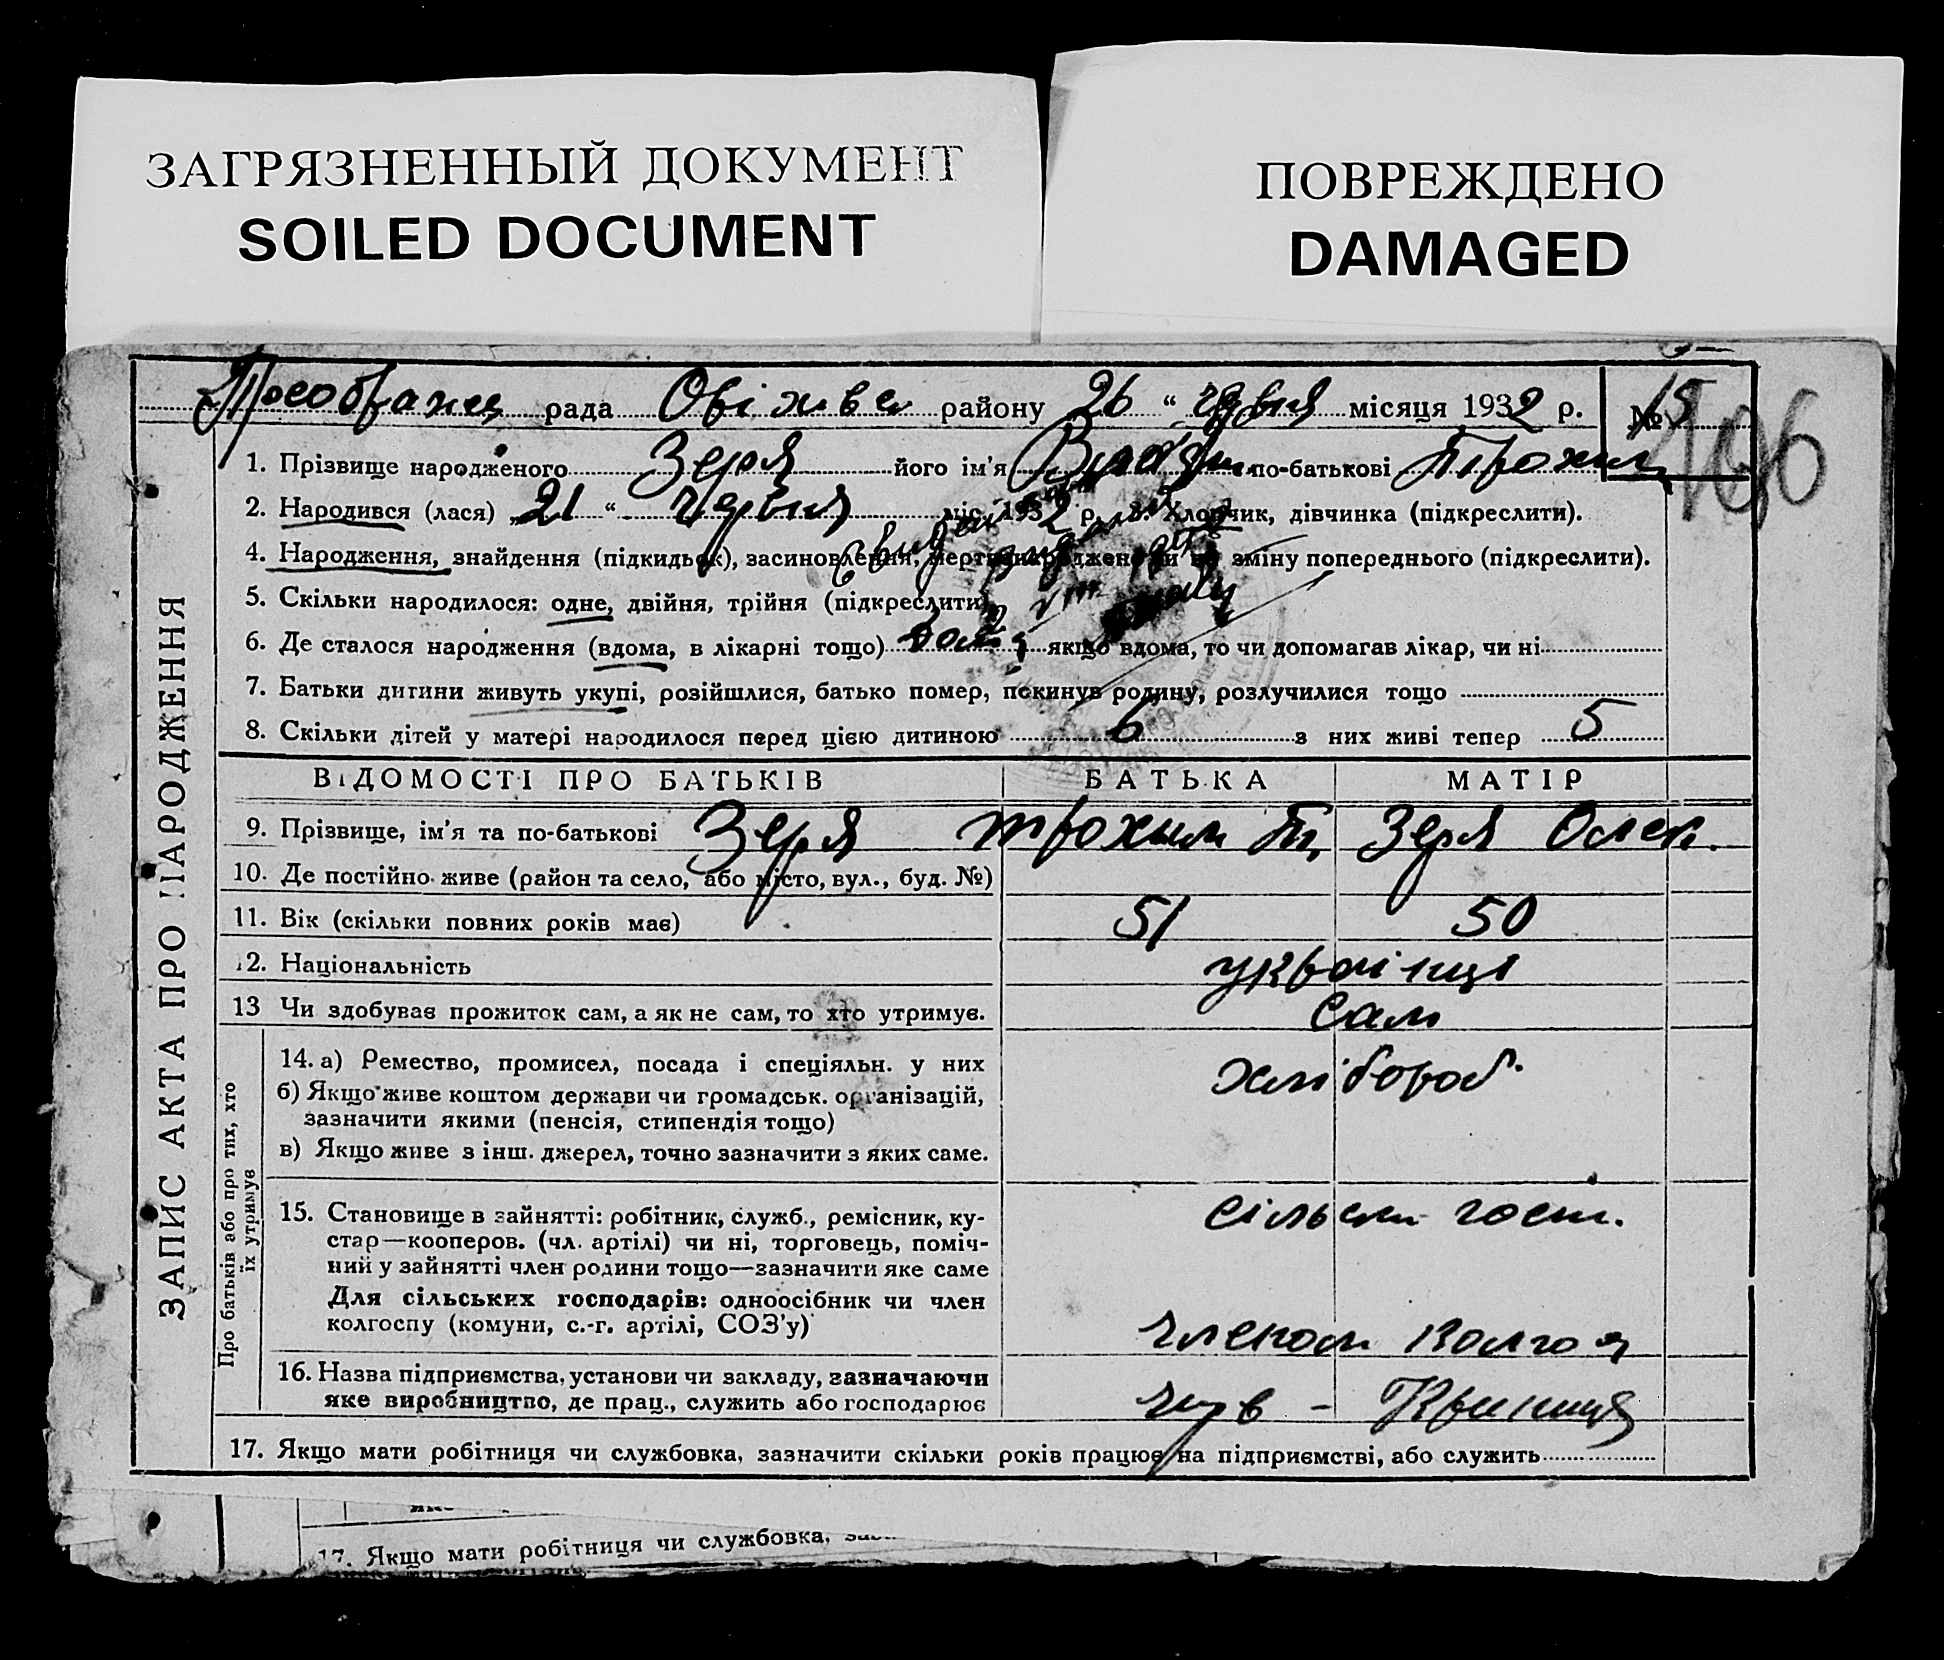 ЗАГРЯЗНЕННЫЙ ДОКУМЕНТ
SOILED DOCUMENT
ПОВРЕЖДЕНО
DAMAGED
рада районУ 26 “ червня місяця 1932 р. № 15
196
1. Прізвище народженого Зеря його ім’я по-батькові
2. Народився (лася) „21 “ червня міс. 1932 р. 3. Хлопчик, дівчинка (підкреслити).
4. Народження, знайдення (підкидьок), засиновлення, мертвонароджено чи на зміну попереднього (підкреслити).
5. Скільки народилося: одне, двійня, трійня (підкреслити)
6. Де сталося народження (вдома, в лікарні тощо) якщо вдома, то чи допомагав лікар, чи ні
7. Батьки дитини живуть укупі, розійшлися, батько помер, покинув родину, розлучилися тощо
8. Скільки дітей у матері народилося перед цією дитиною 6 з них живі тепер 5
ЗАПИС АКТА ПРО НАРОДЖЕННЯ
ВІДОМОСТІ ПРО БАТЬКІВ БАТЬКА МАТІР
9. Прізвище, ім’я та по-батькові Зеря Трохим Зеря Олек.
10. Де постійно живе (район та село, або місто, вул., буд. №)
11. Вік (скільки повних років має) 51 50
12. Національність українці
13 Чи здобуває прожиток сам, а як не сам, то хто утримує. Сам
Про батьків або про тих, хто
їх утримує
14. а) Ремество, промисел, посада і спеціяльн. у них хлібороб.
б) Якщо живе коштом держави чи громадськ. організацій,
зазначити якими (пенсія, стипендія тощо)
в) Якщо живе з інш. джерел, точно зазначити з яких саме.
15. Становище в зайнятті: робітник, служб., ремісник, ку-
стар—кооперов. (чл. артілі) чи ні, торговець, поміч-
ний у зайнятті член родини тощо—зазначити яке саме
Для сільських господарів: одноосібник чи член
колгоспу (комуни, с.-г. артілі, СОЗ’у)
сільськ госп.
членом
16. Назва підприємства, установи чи закладу, зазначаючи
яке виробництво, де прац., служить або господарює
Криниця
17. Якщо мати робітниця чи службовка, зазначити скільки років працює на підприємстві, або служить
17. Якщо мати робітниця чи службовка,